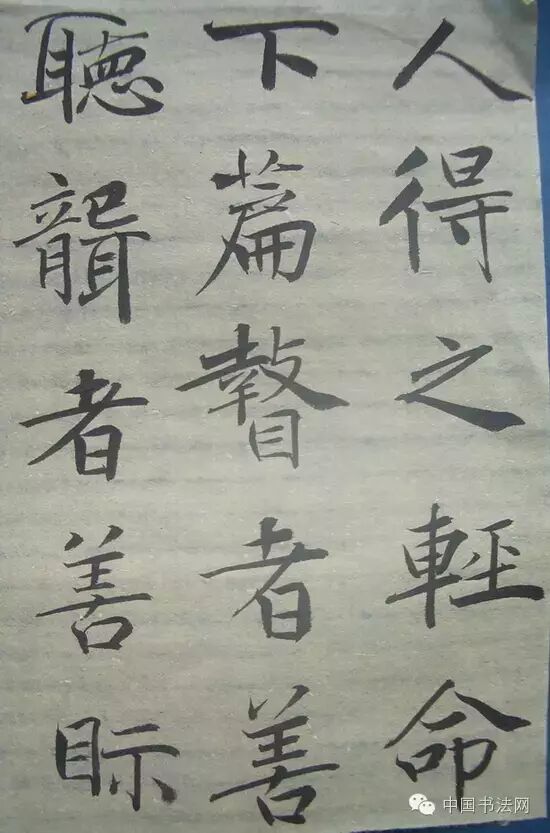 人得之輕命
下篇瞽者善
聽聾者善眎
中国书法网